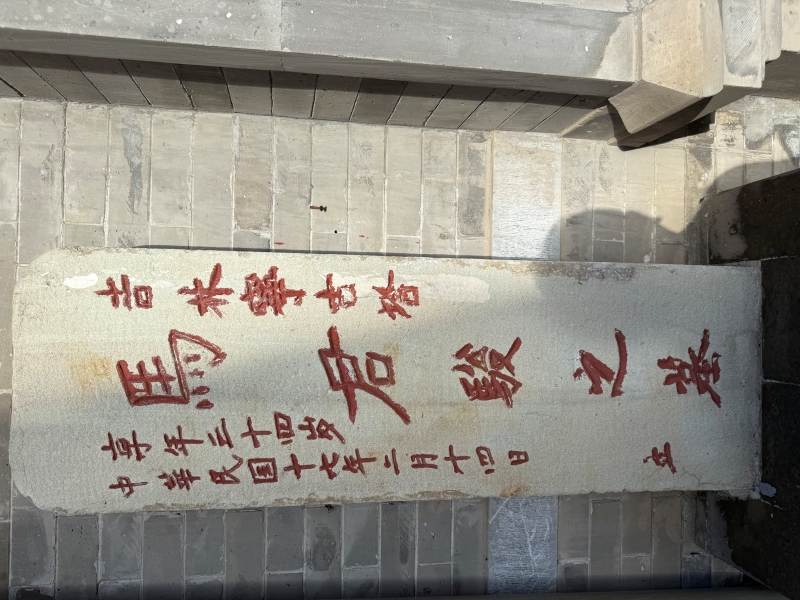 吉林寧古塔
馬君駿之墓
享年三十四岁
中華民国十七年二月十四日 立